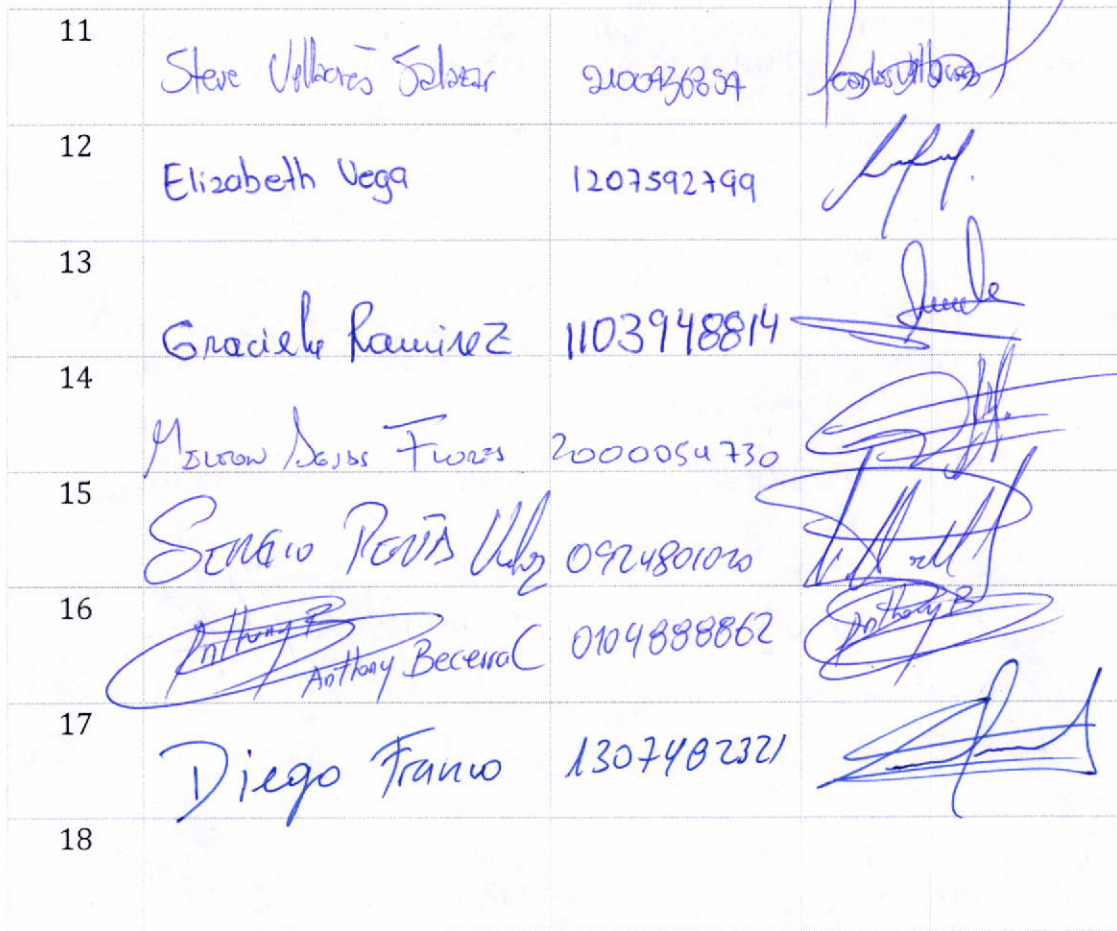 11
Steve Villacrés Salazar 2100936859
12
Elizabeth Vega 1207592799
13
Graciela Ramirez 1103948814
14
Flores 2000054730
15
Sergio 0924801020
16
Anthony B Anthony Becerra C 0104888862 Anthony B
17
Diego Franco 1307482321
18